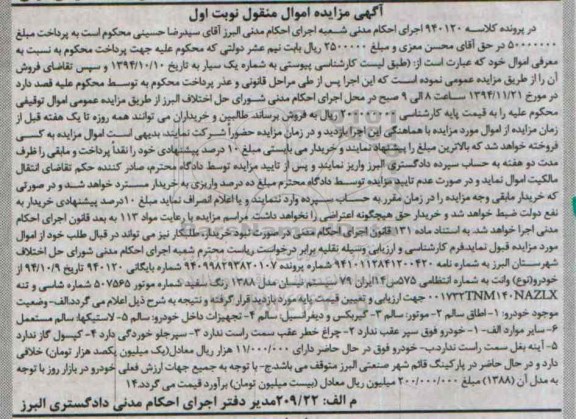 آگهی مزایده اموال منقول نوبت اول
در پرونده کلاسه ۹۴۰۱۲۰ اجرای احکام مدنی شعبه اجرای احکام مدنی البرز آقای سیدرضا حسینی محکوم است به پرداخت مبلغ
۵۰۰۰۰۰۰۰ در حق آقای محسن معزی و مبلغ ۲۵۰۰۰۰۰ ریال بابت نیم عشر دولتی که محکوم علیه جهت پرداخت محکوم به نسبت به
معرفی اموال خود که عبارت است از: (طبق لیست کارشناسی پیوستی به شماره یک سیار به تاریخ ۱۳۹۴/۱۰/۱۰ و سپس تقاضای فروش
آن را از طریق مزایده عمومی نموده است که این اجرا پس از طی مراحل قانونی و عذر پرداخت محکوم به توسط محکوم علیه قصد دارد
در مورخ ۱۳۹۴/۱۱/۲۱ ساعت ۸ الی ۹ صبح در محل اجرای احکام مدنی شورای حل اختلاف البرز از طریق مزایده عمومی اموال توقیفی
محکوم علیه را به قیمت پایه کارشناسی ۲۰۰۰۰۰۰۰۰ ریال به فروش برساند. طالبین و خریداران می توانند همه روزه تا یک هفته قبل از
زمان مزایده از اموال مورد مزایده با هماهنگی این اجرا بازدید و در زمان مزایده حضوراً شرکت نمایند، بدیهی است اموال مزایده به کسی
فروخته خواهد شد که بالاترین مبلغ را پیشنهاد نمایند و خریدار می بایستی مبلغ ۱۰ درصد پیشنهادی خود را نقداً پرداخت و مابقی را ظرف
مدت دو هفته به حساب سپرده دادگستری البرز واریز نمایند و پس از تایید مزایده توسط دادگاه محترم، صادر کننده حکم تقاضای انتقال
مالکیت اموال نماید و در صورت عدم تایید مزایده توسط دادگاه محترم مبلغ ده درصد واریزی به خریدار مسترد خواهد شد و در صورتی
که خریدار مابقی وجه مزایده را در زمان مقرر به حساب سپرده وارد ننمایند و یا اعلام انصراف نماید مبلغ ۱۰ درصد پیشنهادی خریدار به
نفع دولت ضبط خواهد شد و خریدار حق هیچگونه اعتراضی را نخواهد داشت. مراسم مزایده با رعایت مواد ۱۱۳ به بعد قانون اجرای احکام
مدنی اجرا خواهد شد. به استناد ماده ۱۳۱ قانون اجرای احکام مدنی در صورت نبود خریدار، طلبکار نیز می تواند در قبال طلب خود از اموال
مورد مزایده قبول نماید. فرم کارشناسی و ارزیابی وسیله نقلیه برابر درخواست ریاست محترم شعبه اجرای احکام مدنی شورای حل اختلاف
شهرستان البرز به شماره نامه ۹۴۱۰۱۱۲۸۴۱۲۰۰۴۲۰ شماره پرونده ۹۴۰۹۹۸۲۹۳۸۲۰۱۰۷ شماره بایگانی ۹۴۰۱۲۰ تاریخ ۹۴/۱۰/۹ از
خودرو(نوع) وانت به شماره انتظامی ۵۷۵ص۱۴ ایران ۷۹ سیستم نیسان مدل ۱۳۸۸ رنگ سفید شماره موتور ۵۰۷۵۶۵ شماره شاسی و تنه
۰۰۱۷۳۲TNM۱۴۰NAZLX جهت ارزیابی و تعیین قیمت پایه مورد بازدید قرار گرفته و نتیجه به شرح ذیل اعلام می گردد الف- وضعیت
موجود خودرو: ۱- اطاق سالم ۲- موتور: سالم ۳- گیربکس و دیفرانسیل: سالم ۴- تجهیزات داخل خودرو: سالم ۵- لاستیکها: سالم مستعمل
۶- سایر موارد الف- ۱- خودرو فوق سپر عقب ندارد ۲- چراغ خطر عقب سمت راست ندارد ۳- سپرجلو خوردگی دارد ۴- کپسول گاز ندارد
۵- آینه بغل سمت راست ندارد.ب- خودرو فوق در حال حاضر دارای ۱۱/۰۰۰/۰۰۰ هزار ریال معادل(یک میلیون یکصد هزار تومان) خلافی
دارد و در حال حاضر در پارکینگ قائم شهر صنعتی البرز متوقف می باشد.ج- با توجه به جمیع جهات ارزش فعلی خودرو در بازار روز با توجه
به مدل آن (۱۳۸۸) مبلغ ۲۰۰/۰۰۰/۰۰۰ میلیون ریال معادل (بیست میلیون تومان) برآورد قیمت می گردد.۱۴
م الف: ۲۰۹/۲۲ مدیر دفتر اجرای احکام مدنی دادگستری البرز